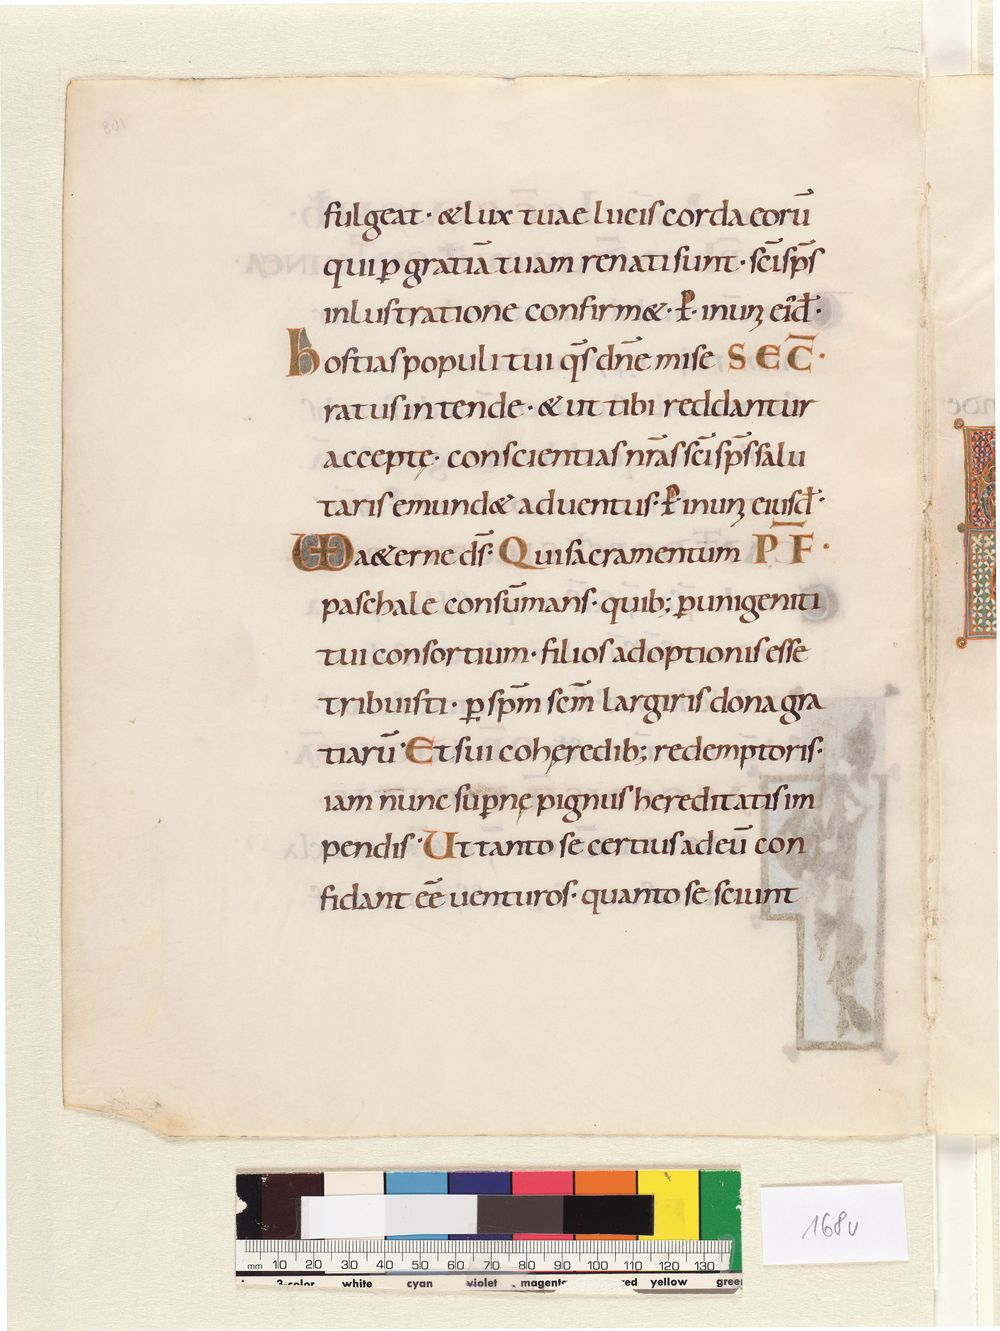 fulgeat· & lux tuae lucis corda eorū
qui ꝑ gratiā tuam renati sunt· sc̄i sp̄s
inlustratione confirm&· P̄. in unꝫ eiđ·
hostias populi tui q̄s dn̄e mise SEC̄·
ratus intende· & ut tibi reddantur
acceptę· conscientias nr̄as sc̄i sp̄s salu
taris emund& aduentus· P̄. in unꝫ eiusđ·
UD a&erne ds̄· Qui sacramentum PF̄·
paschale consūmans· quib; ꝑ unigeniti
tui consortium· filios adoptionis esse
tribuisti· ꝑ sp̄m sc̄m largiris dona gra
tiarū· Et sui cohęredib; redemptoris·
iam nunc suꝑnę pignus hereditatis im
pendis· Ut tanto se certius ad eū con
fidant ēē uenturos· quanto se sciunt
168
168v
mm 10 20 30 40 50 60 70 80 90 100 110 120 130
3-color white cyan violet magenta red yellow green